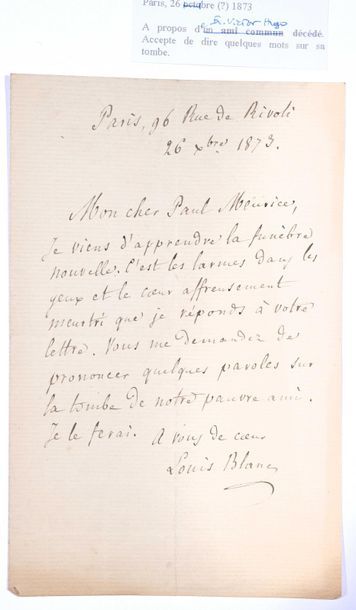 Paris, 26 octobre (?) 1873
Fr. Victor Hugo
A propos d'un ami commun décédé.
Accepte de dire quelques mots sur sa
tombe.
Paris, 96 Rue de Rivoli
26 xbre 1873.
Mon cher Paul Meurice,
Je viens d'apprendre la funèbre
nouvelle. C'est les larmes dans les
yeux et le cœur affreusement
meurtri que je réponds à votre
lettre. Vous me demandez de
prononcer quelques paroles sur
la tombe de notre pauvre ami.
Je le ferai. A vous de cœur
Louis Blanc